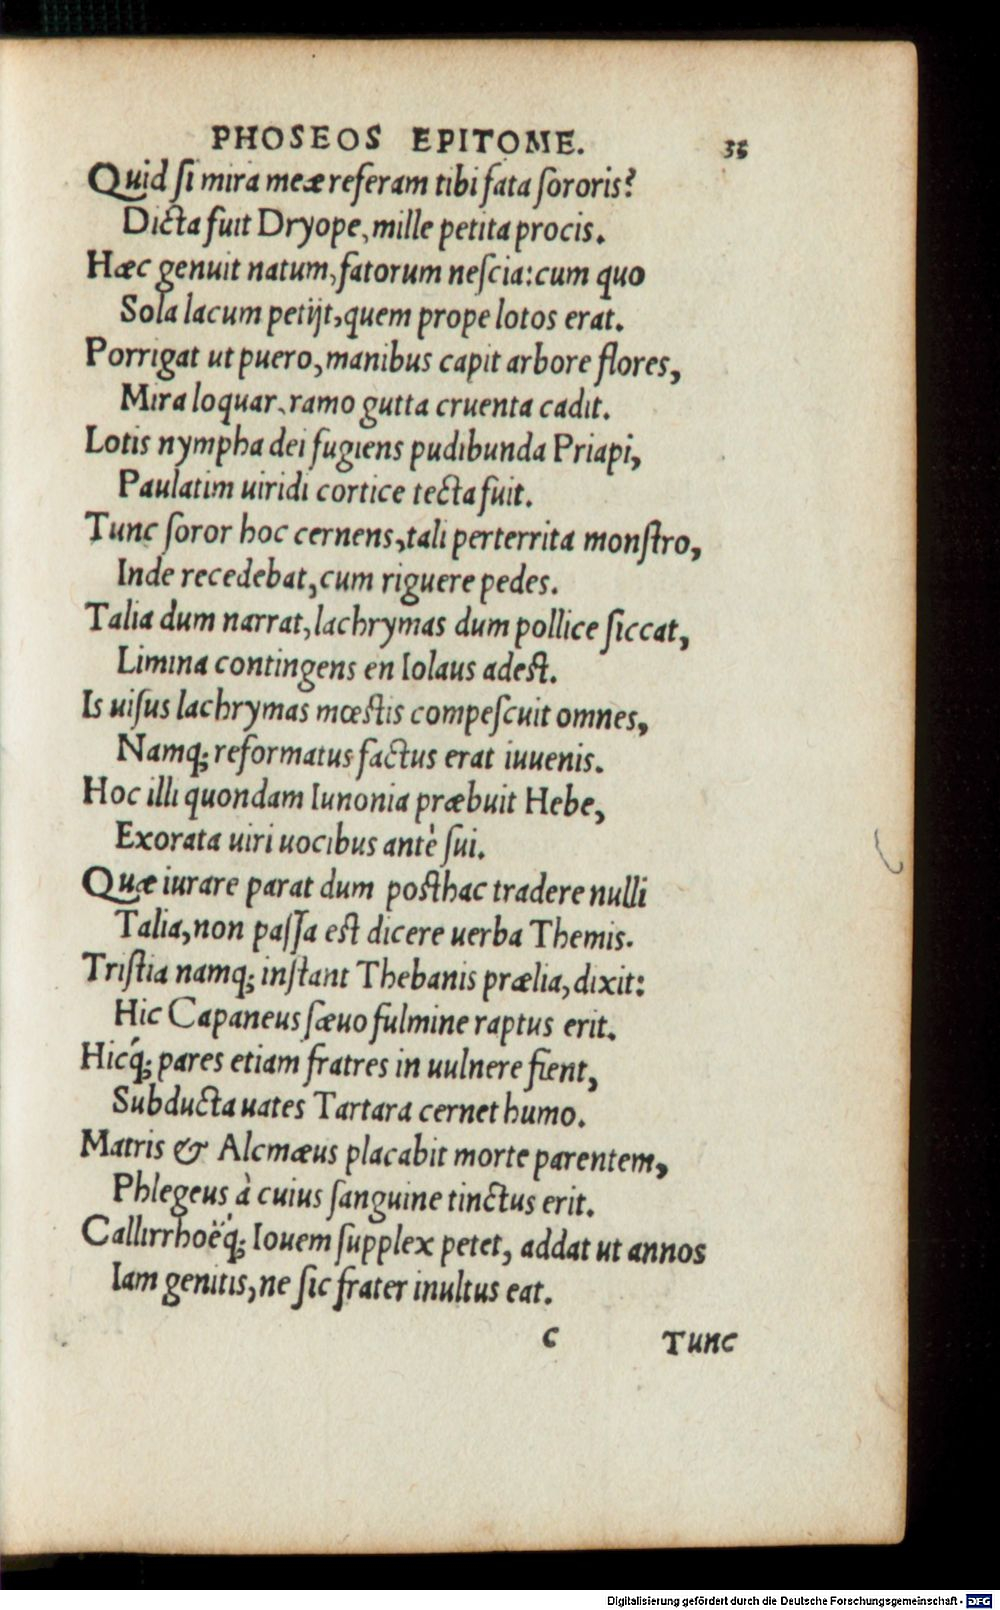 PHOSEOS EPITOME. 35
Quid ſi mira meæ referam tibi fata ſororis?
Dicta fuit Dryope, mille petita procis.
Hæc genuit natum, fatorum neſcia: cum quo
Sola lacum petijt, quem prope lotos erat.
Porrigat ut puero, manibus capit arbore flores,
Mira loquar, ramo gutta cruenta cadit.
Lotis nympha dei fugiens pudibunda Priapi,
Paulatim uiridi cortice tecta fuit.
Tunc ſoror hoc cernens, tali perterrita monſtro,
Inde recedebat, cum riguere pedes.
Talia dum narrat, lachrymas dum pollice ſiccat,
Limina contingens en Iolaus adeſt.
Is uiſus lachrymas mœſtis compeſcuit omnes,
Namq; reformatus factus erat iuuenis.
Hoc illi quondam Iunonia præbuit Hebe,
Exorata uiri uocibus antè ſui.
Quæ iurare parat dum poſthac tradere nulli
Talia, non paſſa eſt dicere uerba Themis.
Triſtia namq; inſtant Thebanis prælia, dixit:
Hic Capaneus ſæuo fulmine raptus erit.
Hicq́; pares etiam fratres in uulnere fient,
Subducta uates Tartara cernet humo.
Matris & Alcmæus placabit morte parentem,
Phlegeus à cuius ſanguine tinctus erit.
Callirrhoëq́; Iouem ſupplex petet, addat ut annos
Iam genitis, ne ſic frater inultus eat.
C Tunc
Digitalisierung gefördert durch die Deutsche Forschungsgemeinschaft - DFG